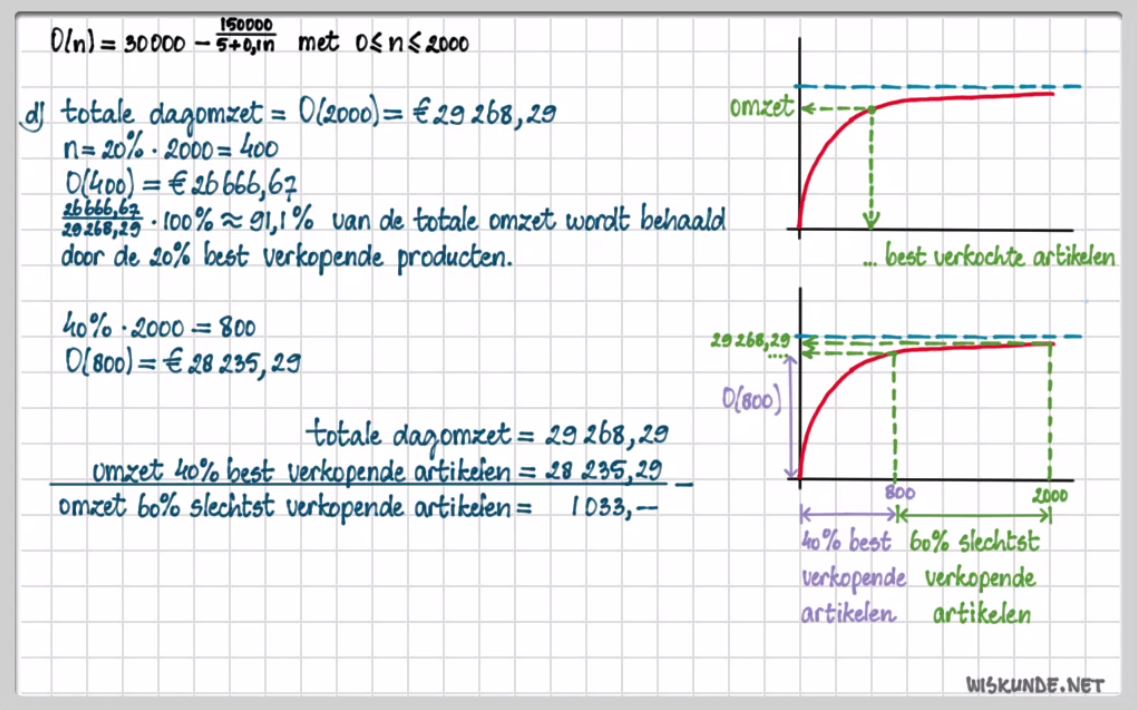 O(n) = 30000 − 150000/(5+0,1n) met 0 ≤ n ≤ 2000
d) totale dagomzet = O(2000) = € 29 268,29
n = 20% · 2000 = 400
O(400) = € 26 666,67
26 666,67/29 268,29 · 100% ≈ 91,1% van de totale omzet wordt behaald
door de 20% best verkopende producten.
40% · 2000 = 800
O(800) = € 28 235,29
totale dagomzet = 29 268,29
omzet 40% best verkopende artikelen = 28 235,29
omzet 60% slechtst verkopende artikelen = 1 033,-- −
omzet
... best verkochte artikelen
29 268,29
....
O(800)
800
2000
40% best
verkopende
artikelen
60% slechtst
verkopende
artikelen
WISKUNDE.NET